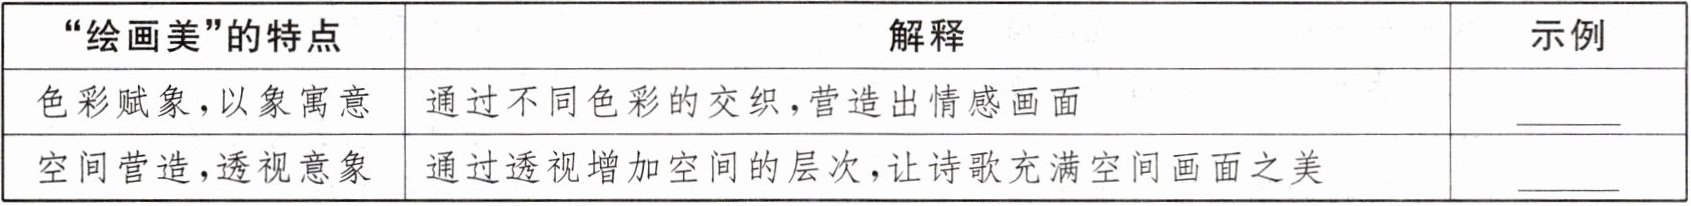 “绘画美”的特点 解释 示例
色彩赋象,以象寓意 通过不同色彩的交织,营造出情感画面
空间营造,透视意象 通过透视增加空间的层次,让诗歌充满空间画面之美